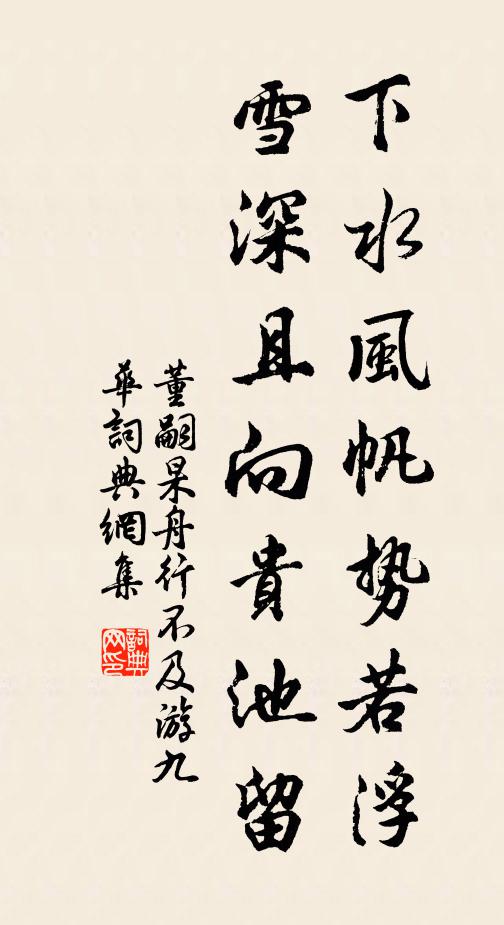 下水風帆势若浮
雪深且向貴池留
董嗣杲舟行不及游九
華詞典網集
詞典
网印